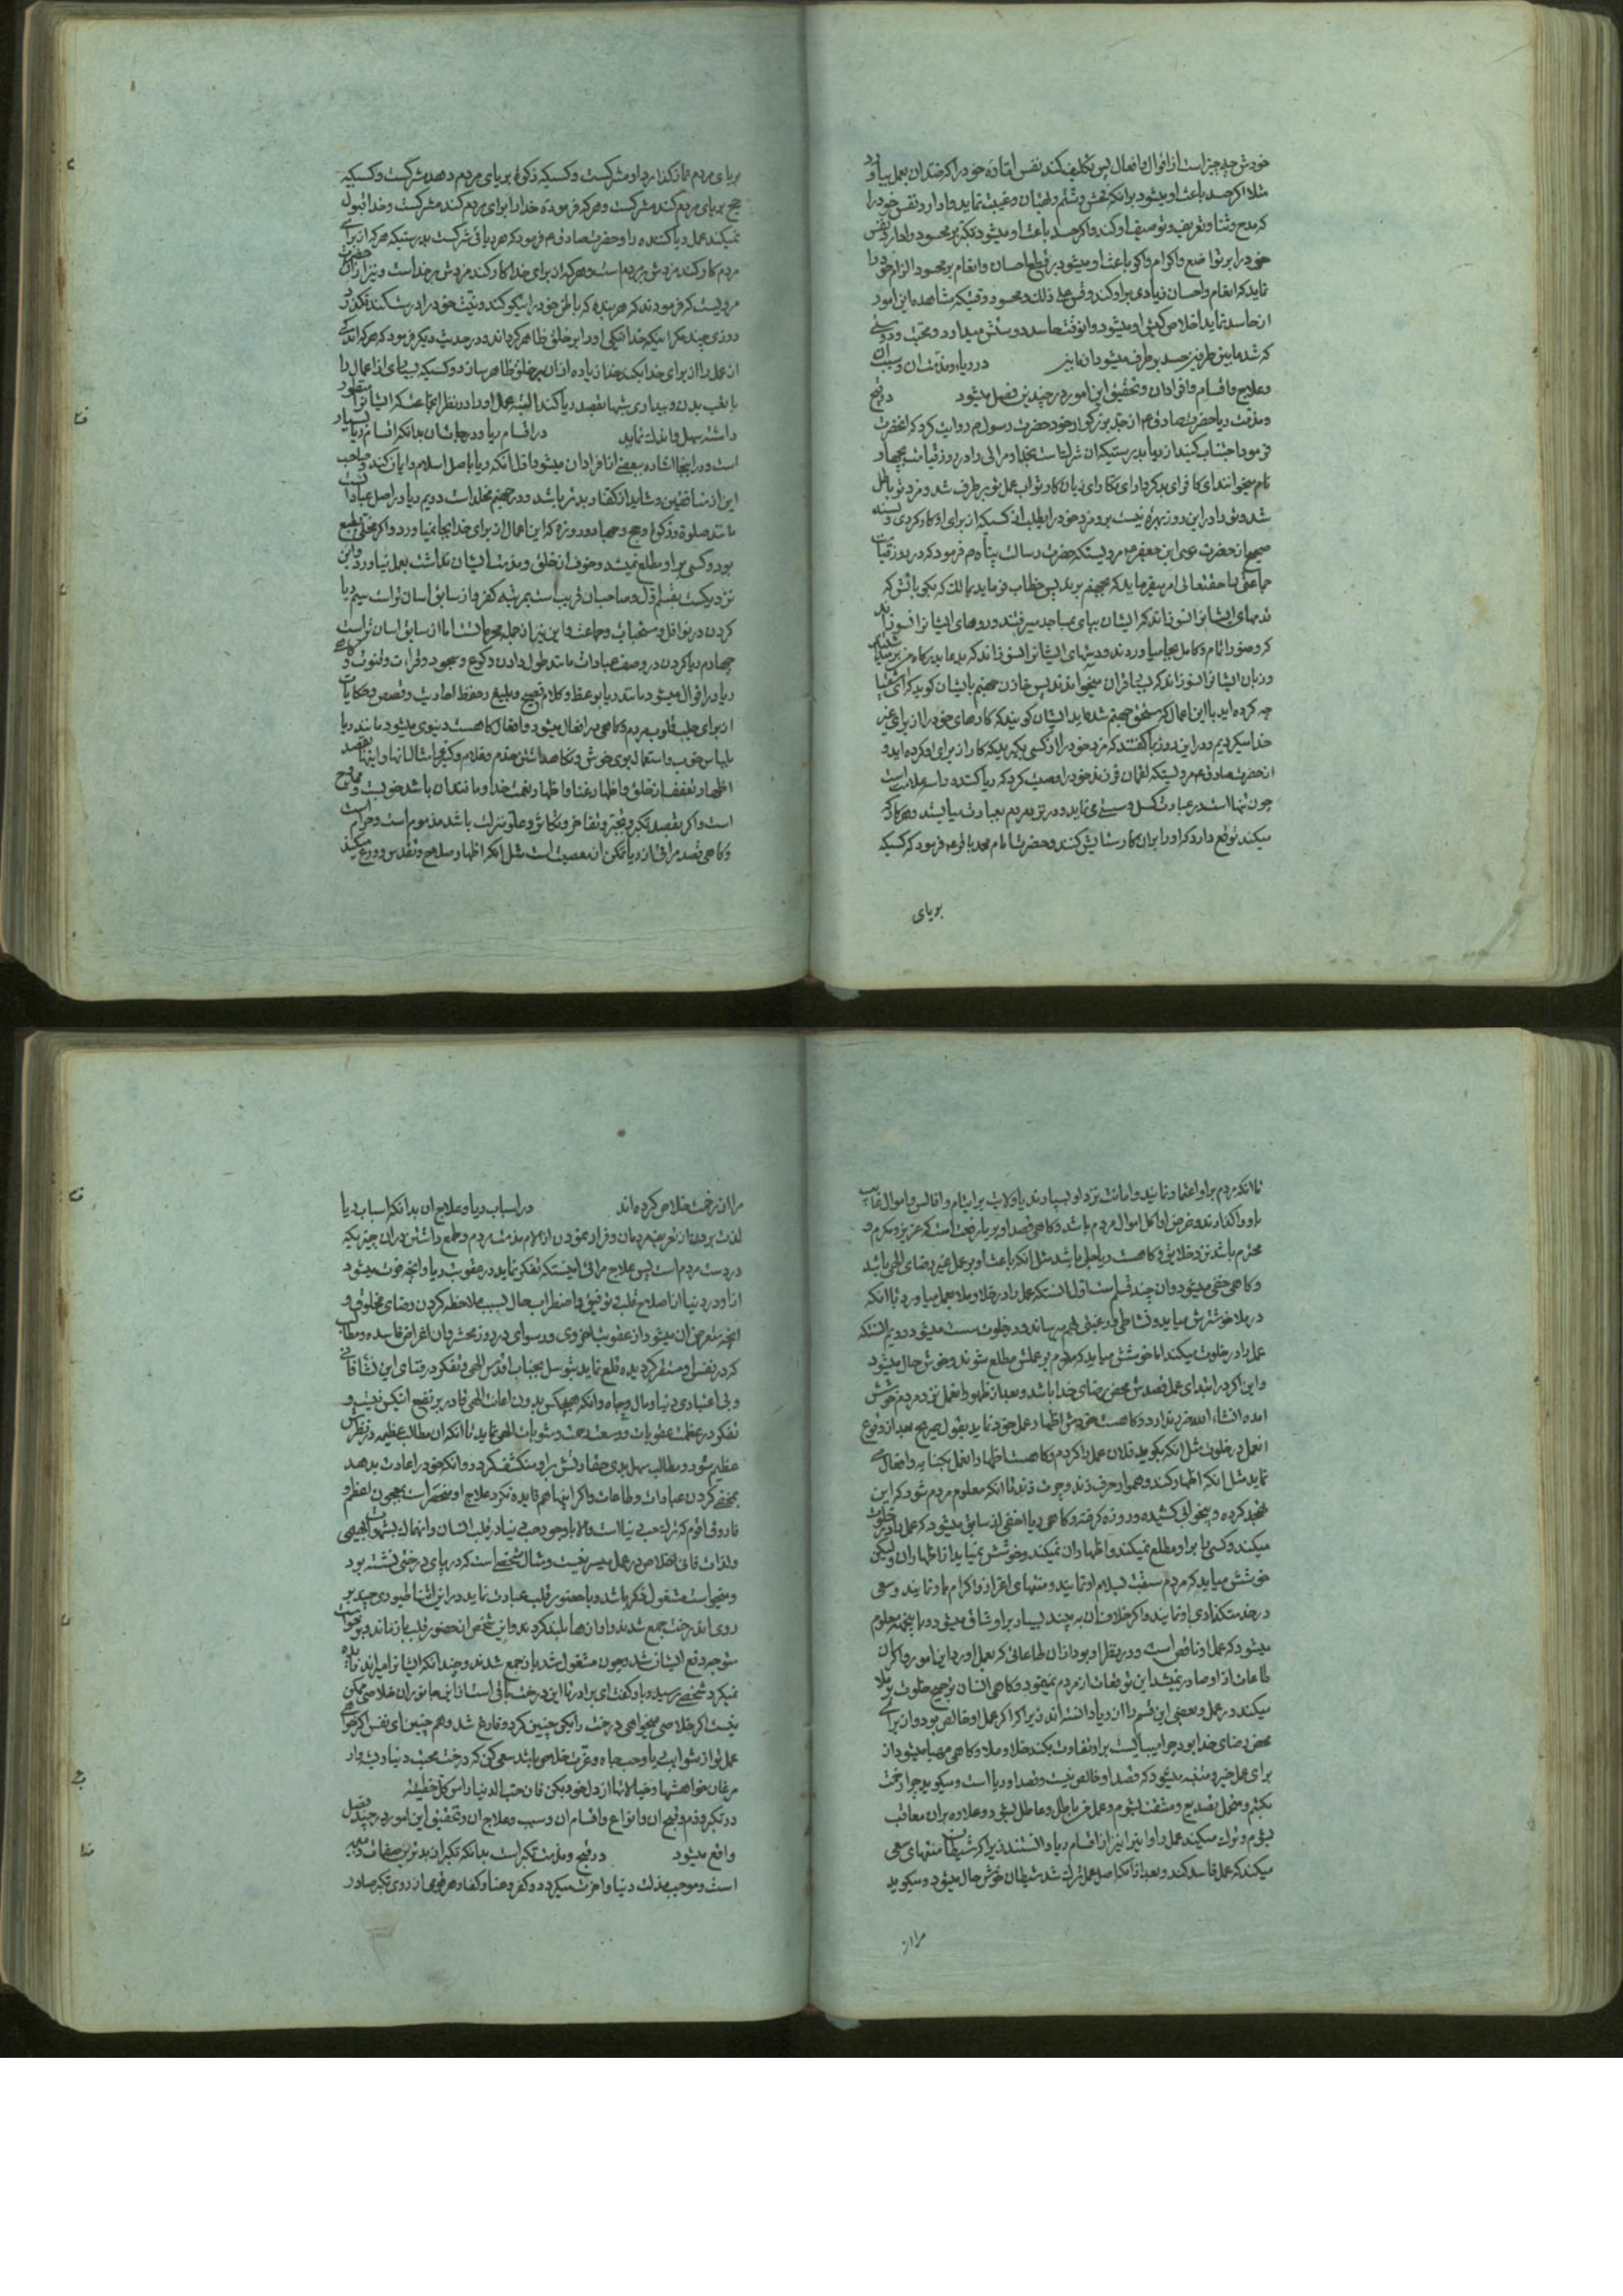 خودش چه چیز است از اقوال و افعال پس تکلیف کند نفس اماره خود را که ضد آن بعمل بیاورد
مثلا اگر حسد باعث او میشود بر آنکه فحش و شتم و بهتان و غیبت نماید وادارد نفس خود را
که مدح و ثنا و تعریف و توصیف او کند و اگر حسد باعث او میشود تکبر بر محسود وادارد نفس
خود را بر تواضع و اکرام و اگر باعث او میشود بر قطع احسان و انعام بر محسود الزام خود را
نماید که انعام و احسان زیادی بر او کند و قس علی ذلک و محسود وقتیکه مشاهده این امور
از حاسد نماید اخلاص کیش او میشود و آنوقت حاسد دوستش میدارد و محبت و دوستی
که شد مابین طرفین حسد بر طرف میشود از مابین در ریا و مذمت آن و سبب آن
و علاج و اقسام و افراد آن و تحقیق این امور در چندین فصل میشود در قبح
و مذمت ریا حضرت صادق ع از جد بزرگوار خود حضرت رسول ص روایت کرد که آنحضرت
فرمود اجتناب کنید از ریا بدرستیکه آن شرکست بخدا و مرائی را در روز قیامت بچهار
نام میخوانند ای کافر ای بدکردار ای مکار ای زیان کار ثواب عمل تو بر طرف شد و مزد تو باطل
شد و تو را در این روز بهرهٔ نیست برو مزد خود را بطلب از کسیکه از برای او کار کردی و بسند
صحیح از حضرت موسی ابن جعفر ع مرویستکه حضرت رسالت پناه ص فرمود که در روز قیامت
جماعتی را حقتعالی امر میفرماید که بجهنم برید پس خطاب فرماید بمالک که بگو بآتش که
قدمهای ایشانرا نسوزاند که ایشان بپای بمساجد میرفتند و روهای ایشانرا نسوزاند
که وضو را تمام و کامل بجا میاوردند و دستهای ایشانرا نسوزاند که بدعا بدرگاه من برمیداشتند
و زبان ایشانرا نسوزاند که بسیار قران میخواندند پس خازن جهنم بایشان گوید که ای اشقیا
چه کرده اید با این اعمال که مستحق جهنم شده اید ایشان گویند که کارهای خود را از برای غیر
خدا میکردیم و در این روز بما گفتند که مزد خود را از کسی بگیرید که کار از برای او کرده اید و
از حضرت صادق ع مرویستکه لقمان فرزند خود را وصیت کرد که ریا کننده را سه علامت است
چون تنها است در عبادت کسل و سستی می نماید و در نزد مردم بعبادت میایستد و هر کار که
میکند توقع دارد که او را بر آن کار ستایش کنند و حضرت امام محمد باقر ع فرمود که کسیکه
بریای
بریای مردم نماز گذارد او مشرکست و کسیکه زکوة بریای مردم دهد مشرکست و کسیکه
حج بریای مردم کند مشرکست و هر که فرمودهٔ خدا را برای مردم کند مشرکست و خدا قبول
نمیکند عمل ریا کننده را و حضرت صادق ع فرمود که هر ریائی شرکست بدرستیکه هر که از برای
مردم کار کند مزدش بر مردم است و هر که از برای خدا کار کند مزدش بر خداست و نیز از آن حضرت
مرویست که فرمودند که هر بنده که باطن خود را نیکو کند و نیت خود را درست کند نگذرد
روزی چند مگر اینکه خدا نیکی او را بر خلق ظاهر گرداند و در حدیث دیگر فرمود که هر که اندکی
از عمل را از برای خدا بکند خدا زیاده از آن بر خلق ظاهر سازد و کسیکه بسیاری از اعمال را
با تعب بدن و بیداری شبها بقصد ریا کند البته عمل او را در نظر جماعتیکه ایشانرا منظور
داشته سهل و اندک نماید در اقسام ریا و درجات آن بدانکه اقسام ریا بسیار
است و در اینجا اشاره ببعضی از افراد آن میشود اول آنکه ریا باصل اسلام و ایمان کند و صاحب
این از منافقین و شاید از کفار بدتر باشد و در جهنم مخلد است دویم ریا در اصل عبادات
مانند صلوة و زکوة و حج و جهاد و روزه که این اعمال از برای خدا بجا نمیاورد و اگر مختلی بطبع
بود و کسی بر او مطلع نمیشد و خوف از خلق و مذمت ایشان نداشت بعمل نیاوردی و این
نزدیکست بقسم اول و صاحب آن قریب است بمرتبه کفر و از سابق آسان تر است سیم ریا
کردن در نوافل و مستحبات و جماعت و این نیز از جمله محرماتست اما از سابق آسان تر است
چهارم ریا کردن در وصف عبادات مانند طول دادن رکوع و سجود و قرائت و قنوت و گاهی
ریا در اقوال میشود مانند ریا بوعظ و کلام فصیح و بلیغ و حفظ احادیث و قصص و حکایات
از برای جلب قلوب مردم و گاهی در افعال میشود و افعال گاهست دنیوی میشود مانند ریا
بلباس خوب و استعمال بوی خوش و نگاهداشتن خدم و غلام و کنیز و امثال آنها و اینها بقصد
اظهار تعفف از خلق و اظهار غنا و اظهار نعمت خدا و مانند آن باشد خوبست و ممدوح
است و اگر بقصد تکبر و تجبر و تفاخر و تکاثر و علو منزلت باشد مذموم است و حرام است
و گاهی قصد مرائی از ریا تمکن از معصیت است مثل آنکه اظهار صلاح و تقدس و ورع میکند
تا آنکه مردم بر او اعتماد نمایند و امانت نزد او بسپارند یا ولایت بر ایتام و اقالس و اموال غایب
باو واگذارند و غرض او اکل اموال مردم باشد و گاهی قصد او بریا رفعت است که عزیز و مکرم و
محترم باشد نزد خلایق و گاهست ریا جلی باشد مثل آنکه باعث او بر عمل غیر رضای الهی باشد
و گاهی خفی میشود و آن چند قسم است اول آنستکه عمل را در خلا و ملا بعمل میاورد تا آنکه
در ملا خوشترش میاید و نشاطی و رغبتی بهم میرساند و در خلوت سست میشود دویم آنستکه
عمل را در خلوت میکند اما خوشش میاید که مردم بر عملش مطلع شوند و خوش حال میشود
و این اگر در ابتدای عمل قصدش محض رضای خدا باشد و بعد از ظهور آن عمل نزد مردم خوشش
آمده انشاء الله ضرر ندارد و گاهست خودش اظهار عمل خود نماید بقول صریح بعد از وقوع
آنعمل در خلوت مثل آنکه بگوید فلان عمل را کردم و گاهست اظهار آنعمل بکنایه و افعال
نماید مثل آنکه اظهار کند و هموار حرف زند و چرت زند تا آنکه معلوم مردم شود که این
تهجد کرده و بیخوابی کشیده و روزه گرفته و گاهی ریا اخفی از سابق میشود که عمل را در خلوت
میکند و کسی را بر او مطلع نمیکند و اظهار آن نمیکند و خوشش نمیاید از اظهار آن ولیکن
خوشش میاید که مردم سبقت بسلام او نمایند و منتهای اعزاز و اکرام باو نمایند و سعی
در خدمتگذاری او نمایند و اگر خلاف آن به بیند بسیار بر او شاق میشود و باینجهت معلوم
میشود که عمل او ناقص است و در نظر او بود از آن طاعاتی که بعمل آورد این امور و اگر آن
طاعات از او صادر نمیشد این توقعات از مردم نمینمود و گاهی انسان ترجیح خلوت بر ملا
میکند در عمل و بعضی این قسم را از ریا دانسته اند زیرا که اگر عمل او خالص بود و از برای
محض رضای خدا بود چرا میبایست بر او تفاوت بکند خلا و ملا و گاهی مهیا میشود از
برای عمل خیر و متنبه میشود که قصد او خالص نیست و قصد او ریا است و میگوید چرا زحمت
بکشم و متحمل تصدیع و مشقت بشوم و عمل من باطل و عاطل بشود و علاوه بر آن معاقب
بشوم و ترک میکند عمل را و این را نیز از اقسام ریا دانستند زیرا که شیطان منتهای سعی
میکند که عمل فاسد کند و بعد از آنکه اصل عمل ترک شد شیطان خوش حال میشود و میگوید
مرا از
مرا از زحمت خلاص کرده اند در اسباب ریا و علاج آن بدانکه اسباب ریا
لذت بردن از تعریف مردمان و فرار نمودن از الام مذمت مردم و طمع داشتن در آن چیزیکه
در دست مردم است پس علاج مرائی اینستکه تفکر نماید در عقوبت ریا و آنچه فوت میشود
از او در دنیا از اصلاح قلب بی توفیق و اضطراب حال بسبب ملاحظه کردن رضای مخلوق و
آنچه متعرض آن میشود از عقوبت اخروی و رسوای در روز محشر و آن اغراض فاسده و مطالب
که در نفس او مستقر گردیده قلع نماید بتوسل بجناب اقدس الهی و تفکر در فنای این نشأة فانی
و بی اعتباری دنیا و مال و جاه و آنکه هیچکس بدون اعانت الهی قادر بر نفع آنکس نیست و
تفکر در عظمت عقوبات و وسعت رحمت و مثوبات الهی نماید تا آنکه آن مطالب عظیمه در نظرش
عظیم شود و مطالب سهل بدی حقارتش بر او منکشف گردد و آنکه خود را عادت بدهد
بمخفی کردن عبادات و طاعات و اگر اینها هم فایده نکرد علاج او منحصر است بمعجون اعظم و
فاروق اقوم که ترک حب دنیا است و الا باوجود حب دنیا در قلب انسان و انهماک بشهوات بهیمی
و لذات فانی اخلاص در عمل میسر نیست و مثال شخصی است که در پای درختی نشسته بود
و میخواست مشغول ذکر باشد و با حضور قلب عبادت نماید در این اثنا طیوری چند بر
روی آن درخت جمع شدند و آوازها بلند کردند و این شخص از حضور قلب باز ماند و برخواست
متوجه دفع ایشان شد و چون مشغول شد باز جمع شدند و چندانکه ایشانرا میراند فایده
نمیکرد شخصی رسید و باو گفت ای برادر تا این درخت باقی است از این جانوران خلاصی ممکن
نیست اگر خلاصی میخواهی درخت را بکن چنین کرد و فارغ شد و هم چنین ای نفس اگر میخواهی
عمل تو از شوایب ریا و حب جاه و عزت خلاص باشد سعی کن که درخت محبت دنیا را بیار
مرغان خواهشها و خیالاتها از دل خود بکن فان حب الدنیا راس کل خطیئة
در تکبر و ذم و قبح آن و انواع و اقسام آن و سبب و علاج آن و تحقیق این امور در چند فصل
واقع میشود در قبح و مذمت تکبر است بدانکه تکبر از بدترین صفات ذمیمه
است و موجب مذلت دنیا و آخرت میگردد و کفر و عناد کفار هر قومی از روی تکبر صادر